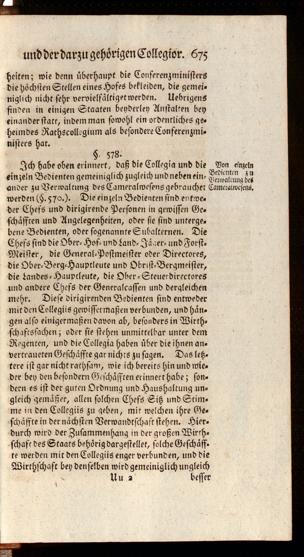 und der darzu gehörigen Collegior. 675
heiten; wie denn überhaupt die Conferenzministers
die höchsten Stellen eines Hofes bekleiden, die gemei-
niglich nicht sehr vervielfältiget werden. Uebrigens
finden in einigen Staaten beyderley Anstalten bey
einander statt, indem man sowohl ein ordentliches ge-
heimdes Rathscollegium als besondere Conferenzmi-
nisters hat.
§. 578.
Ich habe oben erinnert, daß die Collegia und die
einzeln Bedienten gemeiniglich zugleich und neben ein-
ander zu Verwaltung des Cameralwesens gebrauchet
werden (§. 570.). Die einzeln Bedienten sind entwe-
der Chefs und dirigirende Personen in gewissen Ge-
schäfften und Angelegenheiten, oder sie sind unterge-
bene Bedienten, oder sogenannte Subalternen. Die
Chefs sind die Ober-Hof- und Land-Jäger- und Forst-
Meister, die General-Postmeister oder Directores,
die Ober-Berg-Hauptleute und Obrist-Bergmeister,
die Landes-Hauptleute, die Ober-Steuerdirectores
und andere Chefs der Generalcassen und dergleichen
mehr. Diese dirigirenden Bedienten sind entweder
mit den Collegiis gewissermaßen verbunden, und hän-
gen also einigermaßen davon ab, besonders in Wirth-
schaftssachen; oder sie stehen unmittelbar unter dem
Regenten, und die Collegia haben über die ihnen an-
vertraueten Geschäffte gar nichts zu sagen. Das letz-
tere ist gar nicht rathsam, wie ich bereits hin und wie-
der bey den besondern Geschäfften erinnert habe; son-
dern es ist der guten Ordnung und Haushaltung un-
gleich gemäßer, allen solchen Chefs Sitz und Stim-
me in den Collegiis zu geben, mit welchen ihre Ge-
schäffte in der nächsten Verwandtschaft stehen. Hier-
durch wird der Zusammenhang in der großen Wirth-
schaft des Staats behörig dargestellet, solche Geschäff-
te werden mit den Collegiis enger verbunden, und die
Wirthschaft bey denselben wird gemeiniglich ungleich
Uu 2 besser
Von einzeln
Bedienten zu
Verwaltung des
Cameralwesens.